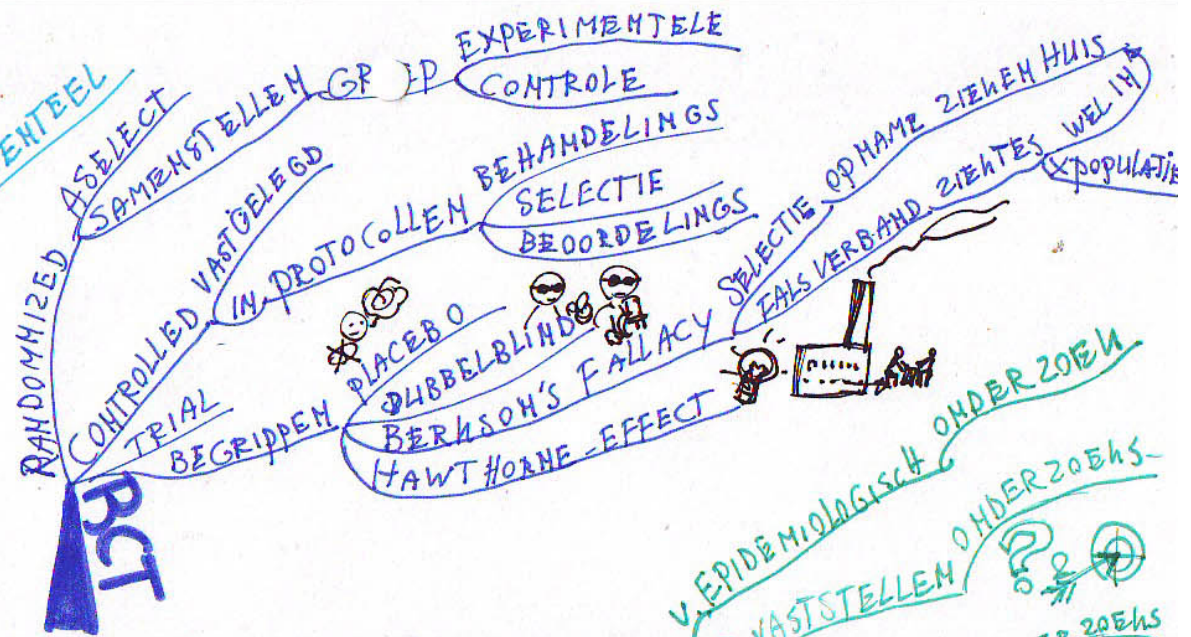 ENTEEL
RANDOMMIZED
ASELECT
SAMENSTELLEN
GR EP
EXPERIMENTELE
CONTROLE
CONTROLLED
VASTGELEGD
IN PROTOCOLLEN
BEHANDELINGS
SELECTIE
BEOORDELINGS
TRIAL
BEGRIPPEN
PLACEBO
DUBBELBLIND
BERKSON'S FALLACY
SELECTIE OPNAME ZIEKENHUIS
FALS VERBAND ZIEKTES WEL IN
X POPULATIE
HAWTHORNE-EFFECT
RCT
V. EPIDEMIOLOGISCH ONDERZOEK
VASTSTELLEN ONDERZOEKS-
ZOEKS